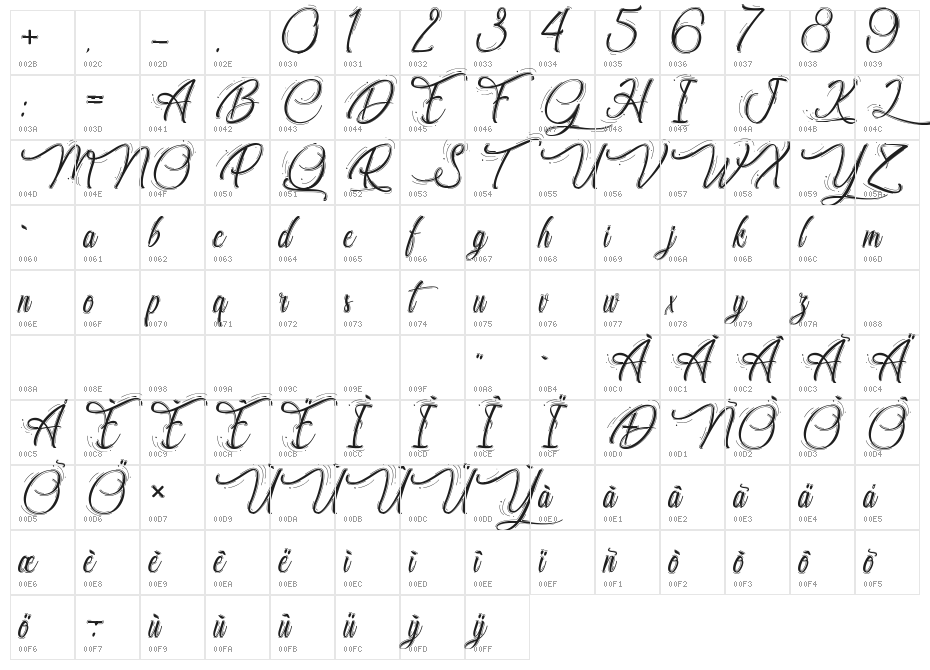 + , - . 0 1 2 3 4 5 6 7 8 9
002B 002C 002D 002E 0030 0031 0032 0033 0034 0035 0036 0037 0038 0039
: = A B C D E F G H I J K L
003A 003D 0041 0042 0043 0044 0045 0046 0047 0048 0049 004A 004B 004C
M N O P Q R S T U V W X Y Z
004D 004E 004F 0050 0051 0052 0053 0054 0055 0056 0057 0058 0059 005A
` a b c d e f g h i j k l m
0060 0061 0062 0063 0064 0065 0066 0067 0068 0069 006A 006B 006C 006D
n o p q r s t u v w x y z
006E 006F 0070 0071 0072 0073 0074 0075 0076 0077 0078 0079 007A 0088
¨ ` À À Â Ã Ä
008A 008E 0098 009A 009C 009E 009F 00A8 00B4 00C0 00C1 00C2 00C3 00C4
Å È È Ê Ë Ì Ì Î Ï Ð Ñ Ò Ò Ô
00C5 00C8 00C9 00CA 00CB 00CC 00CD 00CE 00CF 00D0 00D1 00D2 00D3 00D4
Õ Ö × Ù Ù Û Ü Y à à â ã ä å
00D5 00D6 00D7 00D9 00DA 00DB 00DC 00DD 00E0 00E1 00E2 00E3 00E4 00E5
æ è è ê ë ì ì î ï ñ ò ò ô õ
00E6 00E8 00E9 00EA 00EB 00EC 00ED 00EE 00EF 00F1 00F2 00F3 00F4 00F5
ö ÷ ù ù û ü ỳ ÿ
00F6 00F7 00F9 00FA 00FB 00FC 00FD 00FF